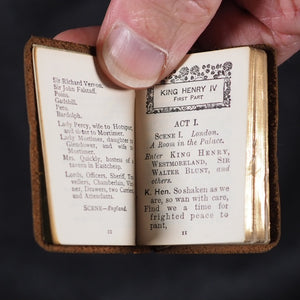 Sir Richard Vernon.
Sir John Falstaff.
Poins.
Gadshill.
Peto.
Bardolph.
Lady Percy, wife to Hotspur,
and sister to Mortimer.
Lady Mortimer, daughter to
Glendower, and wife to
Mortimer.
Mrs. Quickly, hostess of a
tavern in Eastcheap.
Lords, Officers, Sheriff,
vellers, Chamberlain,
ner, Drawers, two Carriers,
and Attendants.
SCENE—England.
KING HENRY IV
FIRST PART
ACT I.
SCENE I. London.
A Room in the Palace.
Enter KING HENRY,
WESTMORELAND, SIR
WALTER BLUNT, and
others.
K. Hen. So shaken as we
are, so wan with care,
Find we a time for
frighted peace to
pant,